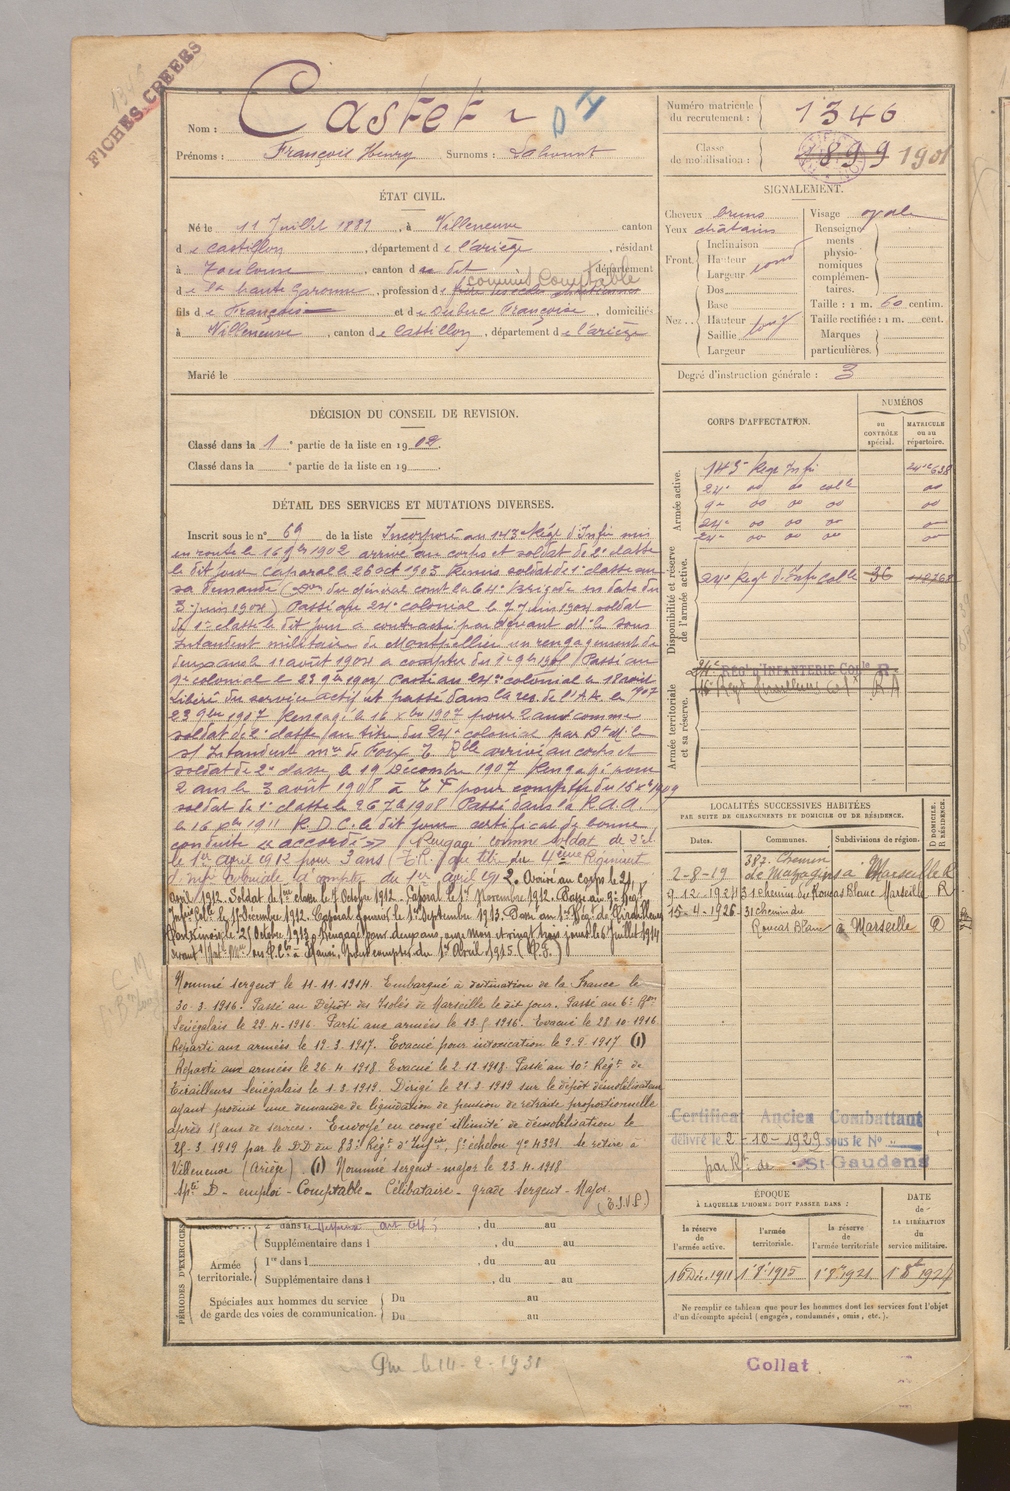 FICHES CREEES
Nom : Castet
Prénoms : François Henry Surnoms :
Numéro matricule
du recrutement : 1346
Classe
de mobilisation : 1899 1901
ÉTAT CIVIL.
Né le 11 Juillet 1881, à Villeneuve canton
de Castillon, département de l'ariège, résidant
à Toulouse, canton du dit, département
de la haute Garonne, profession de commis Comptable
fils de François et de Dubuc Françoise, domiciliés
à Villeneuve, canton de Castillon, département de l'ariège
Marié le
SIGNALEMENT.
Cheveux bruns
Yeux châtains
Front.
Inclinaison
Hauteur
Largeur
Nez..
Dos
Base
Hauteur
Saillie
Largeur
Visage ovale
Renseigne
ments
physio-
nomiques
complémen-
taires.
Taille : 1 m. 60 centim.
Taille rectifiée : 1 m. cent.
Marques
particulières.
Degré d'instruction générale : 3
DÉCISION DU CONSEIL DE REVISION.
Classé dans la 1e partie de la liste en 1902.
Classé dans la e partie de la liste en 19
DÉTAIL DES SERVICES ET MUTATIONS DIVERSES.
Inscrit sous le n° 69 de la liste Incorporé au 143e Rég. d'Infie mis
en route le 16 9bre 1902 arrivé au corps et soldat de 2e classe
le dit jour Caporal le 26 oct 1903 Remis soldat de 1e classe sur
sa demande (Don du général comt la 64e Brigade en date du
3 juin 1904) Passé au 24e colonial le 7 Juin 1904 soldat
de 1e classe le dit jour a contracté par devant Mr le sous
Intendant militaire de Montpellier un rengagement de
deux ans le 11 août 1904 a compter du 1e 9bre 1904 Passé au
9e colonial le 23 9bre 1904 Passé au 24e colonial le
Libéré du service actif et passé dans la res. de l'A.A. le
23 9bre 1907 Rengagé le 16 Xbre 1907 pour 2 ans comme
soldat de 2e classe au titre du 24e colonial par Dt Mr le
s/ Intendant mre de Foix arrivé au corps et
soldat de 2e classe le 19 Décembre 1907 Rengagé pour
2 ans le 3 août 1908 à pour compter du 16 Xe 1909
soldat de 1e classe le 26 7bre 1908 Passé dans la R.A.A.
le 16 Xbre 1911 R.D.C. le dit jour certificat de bonne
conduite "accordé" Rengagé comme soldat de 2e cl
le 1er avril 1912 pour 3 ans au titre du 4eme Régiment
d'infrie coloniale à compter du 1er avril 1912. Arrivé au corps le 21
avril 1912. Soldat de 1re classe le 7 Octobre 1912. Caporal le 1er Novembre 1912. Passé au 9e Régt
Infrie Colle le 11 Décembre 1912. Caporal fourrier le 1er Septembre 1913. Passé au 1er Rég. de Tirailleurs
Tonkinois le 21 Octobre 1913. Rengagé pour deux ans, onze mois et vingt trois jours le 6 Juillet 1914
à Hanoï, pour compter du 1er Avril 1915
Nommé sergent le 11.11.1914. Embarqué à destination de la France le
30.3.1916. Passé au Dépôt des Isolés de Marseille le dit jour. Passé au 6e Bon
Sénégalais le 29.4.1916. Parti aux armées le 13.5.1916. Evacué le 28.10.1916
Reparti aux armées le 19.3.1917. Evacué pour intoxication le 9.9.1917. (1)
Reparti aux armées le 26.4.1918. Evacué le 2.12.1918. Passé au 10e Régt de
Tirailleurs Sénégalais le 1.3.1919. Dirigé le 21.3.1919 sur le dépôt démobilisateur
ayant produit une demande de liquidation de pension de retraite proportionnelle
après 15 ans de services. Envoyé en congé illimité de démobilisation le
25.3.1919 par le DD du 83e Régt d'Infrie, 5e échelon n° 4321. Se retire à
Villeneuve (Ariège) (1) Nommé sergent-major le 23.4.1918
Spté D_ emploi_ Comptable_ Célibataire_ grade Sergent-Major
(T.S.V.P.)
CORPS D'AFFECTATION.
NUMÉROS
au
CONTRÔLE
spécial.
MATRICULE
ou au
répertoire.
Armée active.
143e Régt Infie
24e do do colle
9e do do do
24e do do do
24e do do do
Disponibilité et réserve
de l'armée active.
24e Régt d'Infie Colle 36
Armée territoriale
et sa réserve.
24e REGt D'INFANTERIE COLle R.
16e Régt Tirailleurs
LOCALITÉS SUCCESSIVES HABITÉES
PAR SUITE DE CHANGEMENTS DE DOMICILE OU DE RÉSIDENCE.
Dates. Communes. Subdivisions de région. D DOMICILE. R RÉSIDENCE.
387. Chemin
2-8-19 de Mazargues à Marseille R
9.12.1924 31 chemin du Roucas Blanc Marseille R
15-4-1926 31 chemin du
Roucas Blanc à Marseille D
Certificat Ancien Combattant
délivré le 2-10-1929 sous le N°
par Rt de St-Gaudens
PÉRIODES D'EXERCICES
Supplémentaire dans l , du au
Armée
territoriale.
1re dans l , du au
Supplémentaire dans l , du au
Spéciales aux hommes du service
de garde des voies de communication.
Du au
Du au
ÉPOQUE
À LAQUELLE L'HOMME DOIT PASSER DANS :
DATE
de
LA LIBÉRATION
du
service militaire.
la réserve
de
l'armée active.
l'armée
territoriale.
la réserve
de
l'armée territoriale
16 Déc. 1911 1er 8e 1915 1er 8e 1921 1er 8bre 1927
Ne remplir ce tableau que pour les hommes dont les services font l'objet
d'un décompte spécial (engagés, condamnés, omis, etc.).
le 14-2-1931
Collat